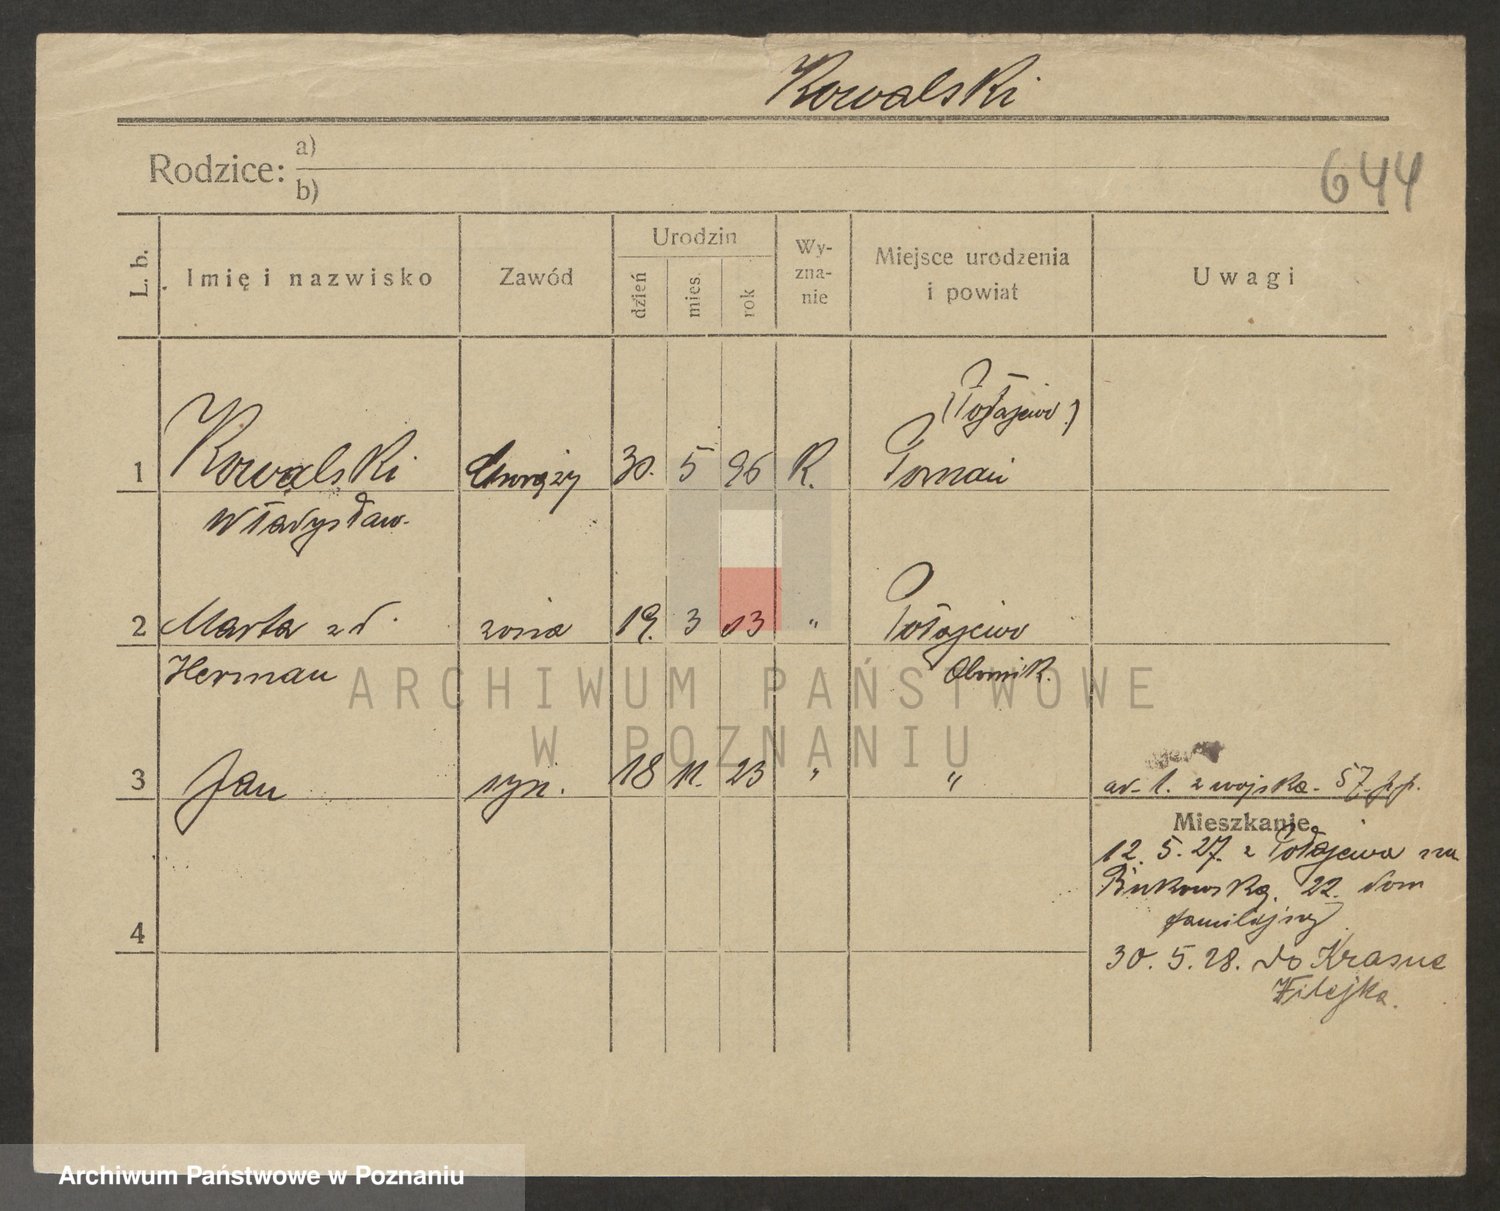 Kowalski
Rodzice: a)
b)
644
L. b.
Imię i nazwisko
Zawód
Urodzin
dzień
mies.
rok
Wy-
zna-
nie
Miejsce urodzenia
i powiat
Uwagi
(Połajewo)
1 Kowalski Chorąży 30. 5 96 R. Poznań
Władysław
2 Marta zd. żona 19. 3 03 " Połajewo
Herman Obornik.
ARCHIWUM PAŃSTWOWE
W POZNANIU
3 Jan syn. 18 11. 23 " " ad. 1. z wojska. 57. p.p.
Mieszkanie
12. 5. 27. z Połajewa na
Bukowską. 22. dom
familijny
4
30. 5. 28. do Krasne
Wilejka.
Archiwum Państwowe w Poznaniu